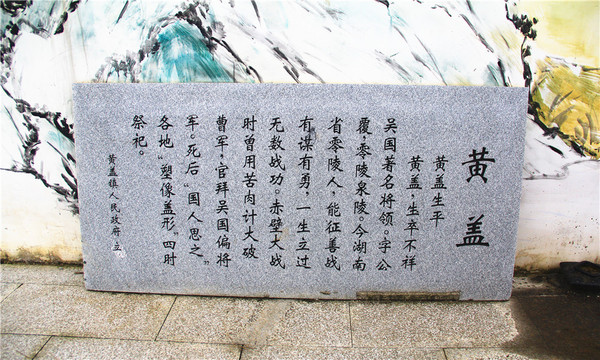 黄盖
黄盖生平
黄盖，生卒不祥
吴国著名将领。字公
覆，零陵泉陵。今湖南
省零陵人，能征善战
有谋有勇，一生立过
无数战功。赤壁大战
时曾用苦肉计大破
曹军，官拜吴国偏将
军。死后“国人思之，”
各地“塑像盖形，四时
祭祀。
黄盖镇人民政府 立